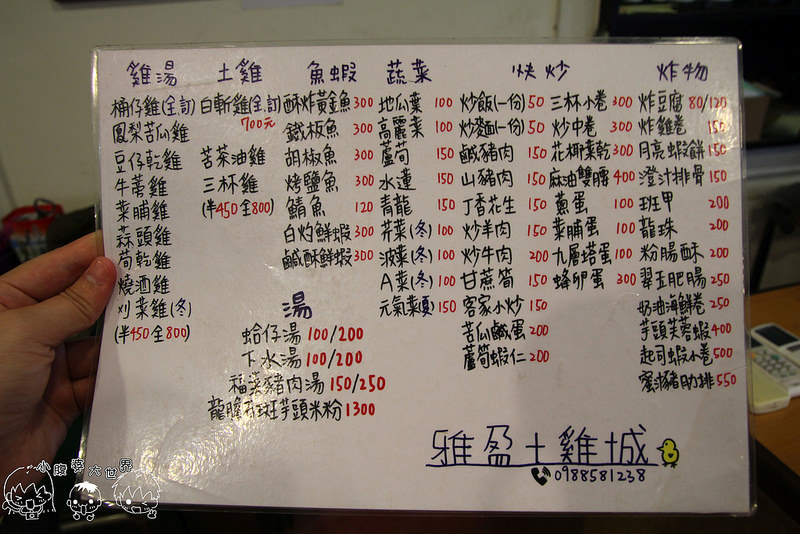 雞湯
桶仔雞(全.訂)
鳳梨苦瓜雞
豆仔乾雞
牛蒡雞
菜脯雞
蒜頭雞
筍乾雞
燒酒雞
刈菜雞(冬)
(半450 全800)
土雞
白斬雞(全.訂)
700元
苦茶油雞
三杯雞
(半450 全800)
魚蝦
酥炸黃金魚 300
鐵板魚 300
胡椒魚 300
烤鹽魚 300
鯖魚 120
白灼鮮蝦 300
鹹酥鮮蝦 300
蔬菜
地瓜葉 100
高麗菜 100
蘆筍 150
水蓮 150
青龍 150
芥菜(冬) 100
波菜(冬) 100
A菜(冬) 100
元氣菜(夏) 150
湯
蛤仔湯 100/200
下水湯 100/200
福菜豬肉湯 150/250
龍膽石斑芋頭米粉 1300
快炒
炒飯(一份) 50
炒麵(一份) 50
鹹豬肉 150
山豬肉 150
丁香花生 150
炒羊肉 150
炒牛肉 200
甘蔗筍 150
客家小炒 150
苦瓜鹹蛋 200
蘆筍蝦仁 200
三杯小卷 300
炒中卷 300
花椰菜乾 300
麻油雙腰 400
蔥蛋 100
菜脯蛋 100
九層塔蛋 100
蜂卵蛋 300
炸物
炸豆腐 80/120
炸雞卷 150
月亮蝦餅 150
澄汁排骨 150
斑甲 200
龍珠 200
粉腸酥 200
翠玉肥腸 250
奶油海鮮卷 250
芋頭芙蓉蝦 400
起司蝦小卷 500
蜜汁豬肋排 550
雅盈土雞城
0988581238
小腹婆大世界